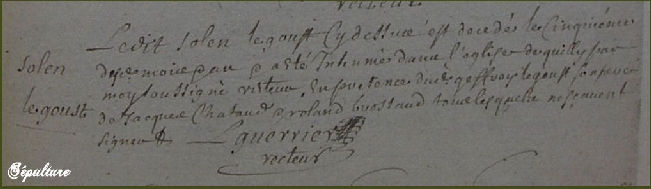 recteur
Ledit solen le goust Cy dessus est decedé le Cinquiéme
solen desd mois et an et a esté Inhumé dans l'eglise de quilly par
moy soussigné recteur, En presence dud geffroy le goust son
le goust de Jacques Chataud et roland brossaud tous lesquels ne sçavent
signer Lguerrier
recteur
Sépulture